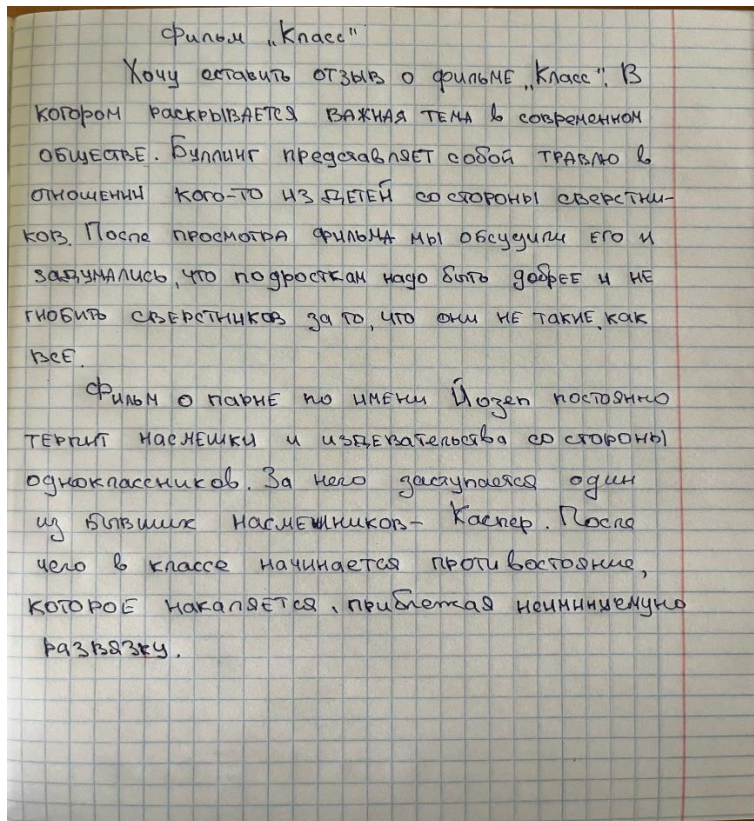 Фильм „Класс"
Хочу оставить отзыв о фильме „Класс". В
котором раскрывается важная тема в современном
обществе. Буллинг представляет собой травлю в
отношении кого-то из детей со стороны сверстни-
ков. После просмотра фильма мы обсудили его и
задумались, что подросткам надо быть добрее и не
гнобить сверстников за то, что они не такие, как
все.
Фильм о парне по имени Йозеп постоянно
терпит насмешки и издевательства со стороны
одноклассников. За него заступается один
из бывших насмешников- Каспер. После
чего в классе начинается противостояние,
которое накаляется, приближая
развязку.